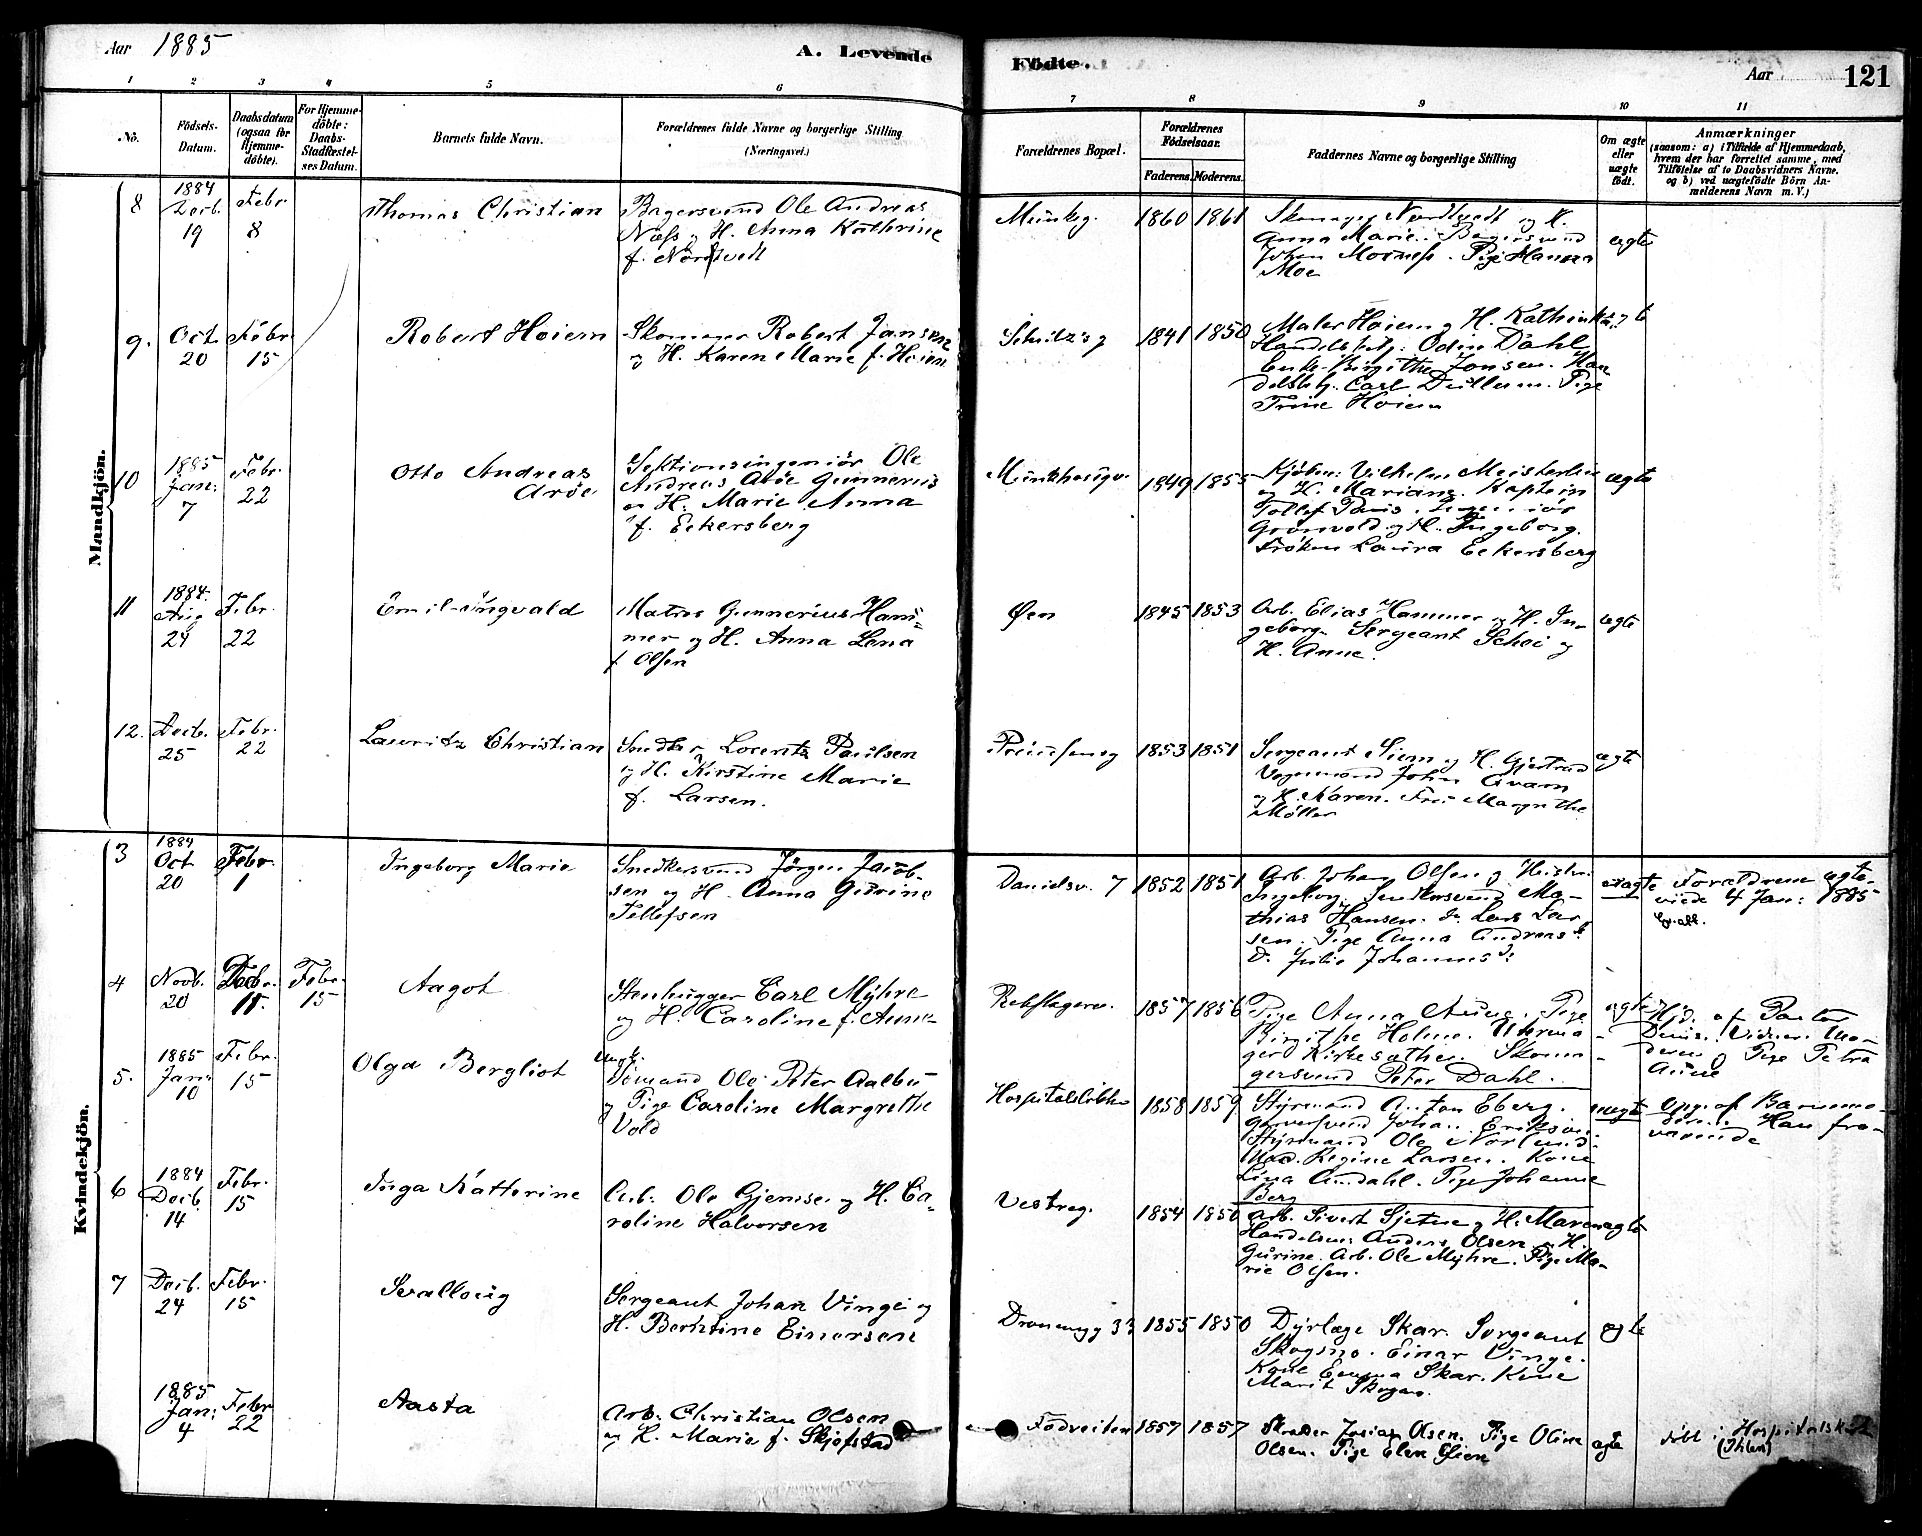 Aar 1885
A. Levende
Födte.
Aar
121
1 2 3 4 5 6 7 8 9 10 11
Nô.
Födsels-
Datum.
Daabsdatum
(ogsaa for
Hjemme-
döbte).
For Hjemme-
döbte:
Daabs-
Stadfæstel-
ses Datum.
Barnets fulde Navn.
Forældrenes fulde Navne og borgerlige Stilling
(Næringsvei.)
Forældrenes Bopæl.
Forældrenes
Födselsaar.
Faderens. Moderens.
Faddernes Navne og borgerlige Stilling
Om ægte
eller
uægte
födt.
Anmærkninger
(saasom: a) i Tilfælde af Hjemmedaab,
hvem der har forrettet samme, med
Tilföielse af to Daabsvidners Navne.
og b) ved uægtefödte Börn An-
melderens Navn m. V.)
Mandkjön.
8
1884
Decb.
19
Febr
8
Thomas Christian
Bagersvend Ole Andreas
Næss og H. Anna Kathrine
f. Nordtvedt
Munkeg.
1860 1861
Skomager Nordtvedt og H.
Anna Marie. Bagersvend
Johan Moxness. Pige Hanna
Moe
ægte
9.
Oct
20
Febr
15
Robert Hoiem
Skomager Robert Jansen
og H. Karen Marie f. Hoiem
1841 1850
Maler Hoiem og H. Kathinka.
Handelsbetj. Odin Dahl
Enke Birgithe Jonsen. Han
delsbetj. Carl Dullum. Pige
Trine Hoiem
ægte
10
1885
Jan:
7
Febr.
22
Otto Andreas
Aröe
Sektionsingeniör Ole
Andreas Aröe Gunnerius
og H. Marie Anna
f. Eckersberg
1849 1855
Kjöbm: Vilhelm Meisterlin
og H. Mariane. Kaptein
Tollef Paus. Ingeniör
Grönvold og H. Ingeborg.
Fröken Laura Eckersberg
ægte
11
1884.
Aug
24
Febr.
22
Emil Ingvald
Matros Gunnerius Ham-
mer og H. Anna Lena
f. Olsen
Øen
1845 1853
Arb. Elias Hammer og H. In-
geborg. Sergeant Schei og
H. Anne.
ægte
12.
Decb.
25
Febr.
22
Lauritz Christian
Snedker Lorentz Paulsen
og H. Kirstine Marie
f. Larsen.
1853 1851
Sergeant Siem og H. Gjertrud
Vognmand John Qvam
og H. Karen. Frü Margrethe
Möller
ægte
Kvindekjön.
3
1884
Oct
20
Febr.
1
Ingeborg Marie
Snedkersvend Jörgen Jacob-
sen og H. Anna Gurine
Tellefsen
Danielsv. 7
1852 1851
Arb. Johan Olsen og Hustru
Ingeborg. Snedkersvend Ma-
thias Hansen. do Lars Lar-
sen. Pige Anna Andreas d.
D. Julie Johannes d:
uægte
Forældrene ægte-
viede 4 Jan: 1885
4
Novb.
20
Febr.
15
Aagot
Stenhugger Carl Myhre
og H. Caroline f. Aune
Rebslagerv.
1857 1856
Pige Anna Aune. Pige
Birgithe Holme. Uhrma
ger Kirkesæther. Skoma
gersvend Peter Dahl.
ægte
Hjd. af Pastor
Denis. Vidner. Mo-
deren og Pige Petra
Aune
5.
1885
Jan:
10
Febr.
15
Olga Bergliot
Ungk.
Sömand Ole Peter Aalbu
og Pige Caroline Margrethe
Vold
Hospitalslökken
1858 1859
Styrmand Anton Eberg.
Garversvend Johan Eriksen.
Styrmand Ole Norlund
Mad. Regine Larsen. Kone
Lina Aundahl. Pige Johanne
Berg
uægte
Opg. af Barnemo-
deren. Han fra-
værende
6
1884
Decb.
14
Febr.
15
Inga Katterine
Arb. Ole Gjemse og H. Ca-
roline Halvorsen
Vestreg.
1854 1850
Arb. Sivert Sjetne og H. Maren
Handelsm: Anders Olsen og H.
Gurine. Arb. Ole Myhre. Pige Ma-
rie Olsen.
ægte
7
Decb.
24
Febr.
15
Svallaug
Sergeant Johan Vinge og
H. Berntine Einersen
1855 1850
Dyrlæge Skar. Sergeant
Skogmo. Einar Vinge.
Kone Emma Skar. Kone
Marit Skogmo.
ægte
1885
Jan:
4
Febr
22
Aasta
Arb. Christian Olsen
og H. Marie f. Skjefstad
Fodveiten
1857 1857
Skrædder Josias Olsen. Pige Oline
Olsen. Pige Elen Oien
ægte
döbt i Hospitalsk
(Ihlen)